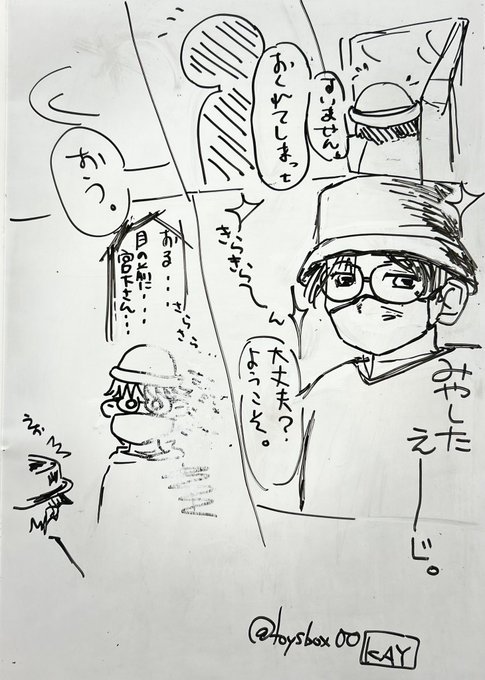 すいません。
おくれてしまっせ
きらきら〜ん
大丈夫？
ようこそ。
みやした
えーじ。
おう。
おる・・・
目の前に・・・
宮下さん・・・
さらさら
@toysbox00
KAY